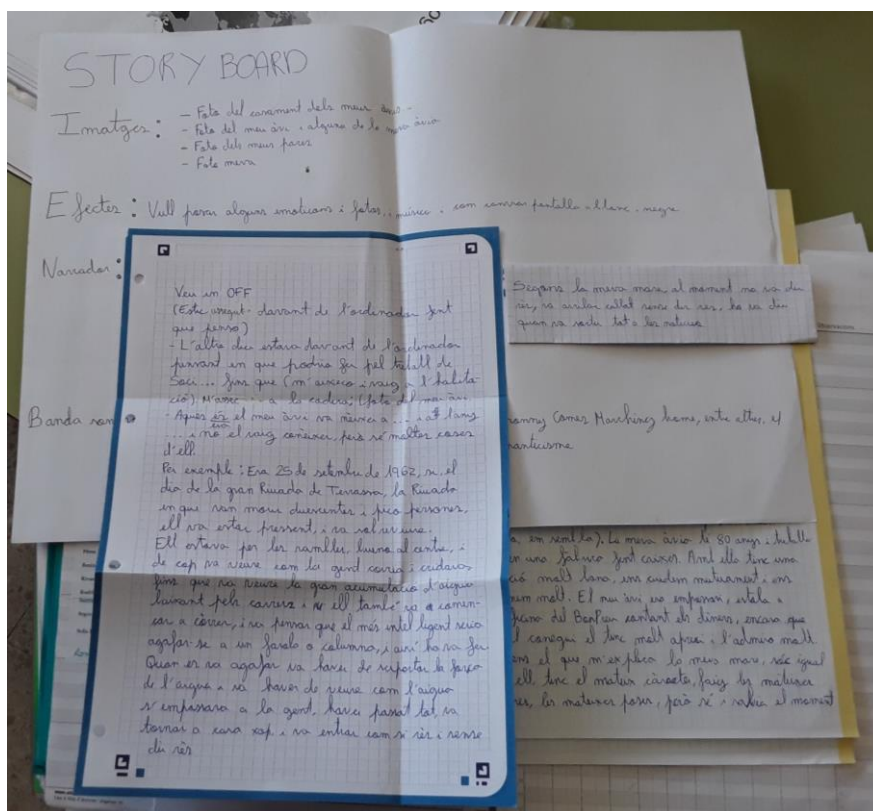 STORY BOARD
Imatges: - Foto del casament dels meus avis -
- Foto del meu avi i alguna de la meva àvia
- Foto dels meus pares
- Foto meva
Efectes: Vull posar alguns emoticons i fotos, música i com canviar pantalla a blanc i negre
Narrador:
Veu en OFF
(Estic assegut davant de l'ordinador fent
que penso)
- L'altre dia estava davant de l'ordinador
pensant en que podria fer pel treball de
Soci... fins que (m'aixeco i vaig a l'habita
ció), M'assec a la cadira; (foto del meu avi
- Aques és el meu avi va néixer a .... i al l'any
.... i no el vaig conèixer, però sé moltes coses
d'ell.
Per exemple: Era 25 de setembre de 1962, si, el
dia de la gran Riuada de Terrassa, la Riuada
en que van morir duescentes i pico persones,
ell va estar pressent, i va sobreviure.
Ell estava per les rambles, al centre, i
de cop va veure com la gent corria i cridava,
fins que va veure la gran acumulació d'aigua
baixant pels carrers i ell també va a comen-
çar a córrer, i va pensar que el més intel·ligent seria
agafar-se a un farola o columna, i així ho va fer
Quan es va agafar va haver de suportar la força
de l'aigua i va haver de veure com l'aigua
s'empassava a la gent, havia passat tot, va
tornar a casa xop i va entrar com si rès i sense
dir rès
Segons la meva mare al moment no va dir
rès, va callat sense dir res, ho va dir
quan va sortir tot a les noticies
Banda son
Johnny Comes Marching home, entre altres, el
romanticisme
, em sembla). La meva àvia té 80 anys i treballa
en una fàbrica fent caixes. Amb ella tinc una
ció molt bona, ens cuidem mutuament i ens
molt. El meu avi era empresari, estava a
del contant els diners, encara que
conegui el tinc molt apreci i l'admiro molt
ens el que m'explica la meva mare, sóc igual
ell, tinc el mateix caràcter, faig les mateixes
les mateixes poses, però sé i sabia el moment